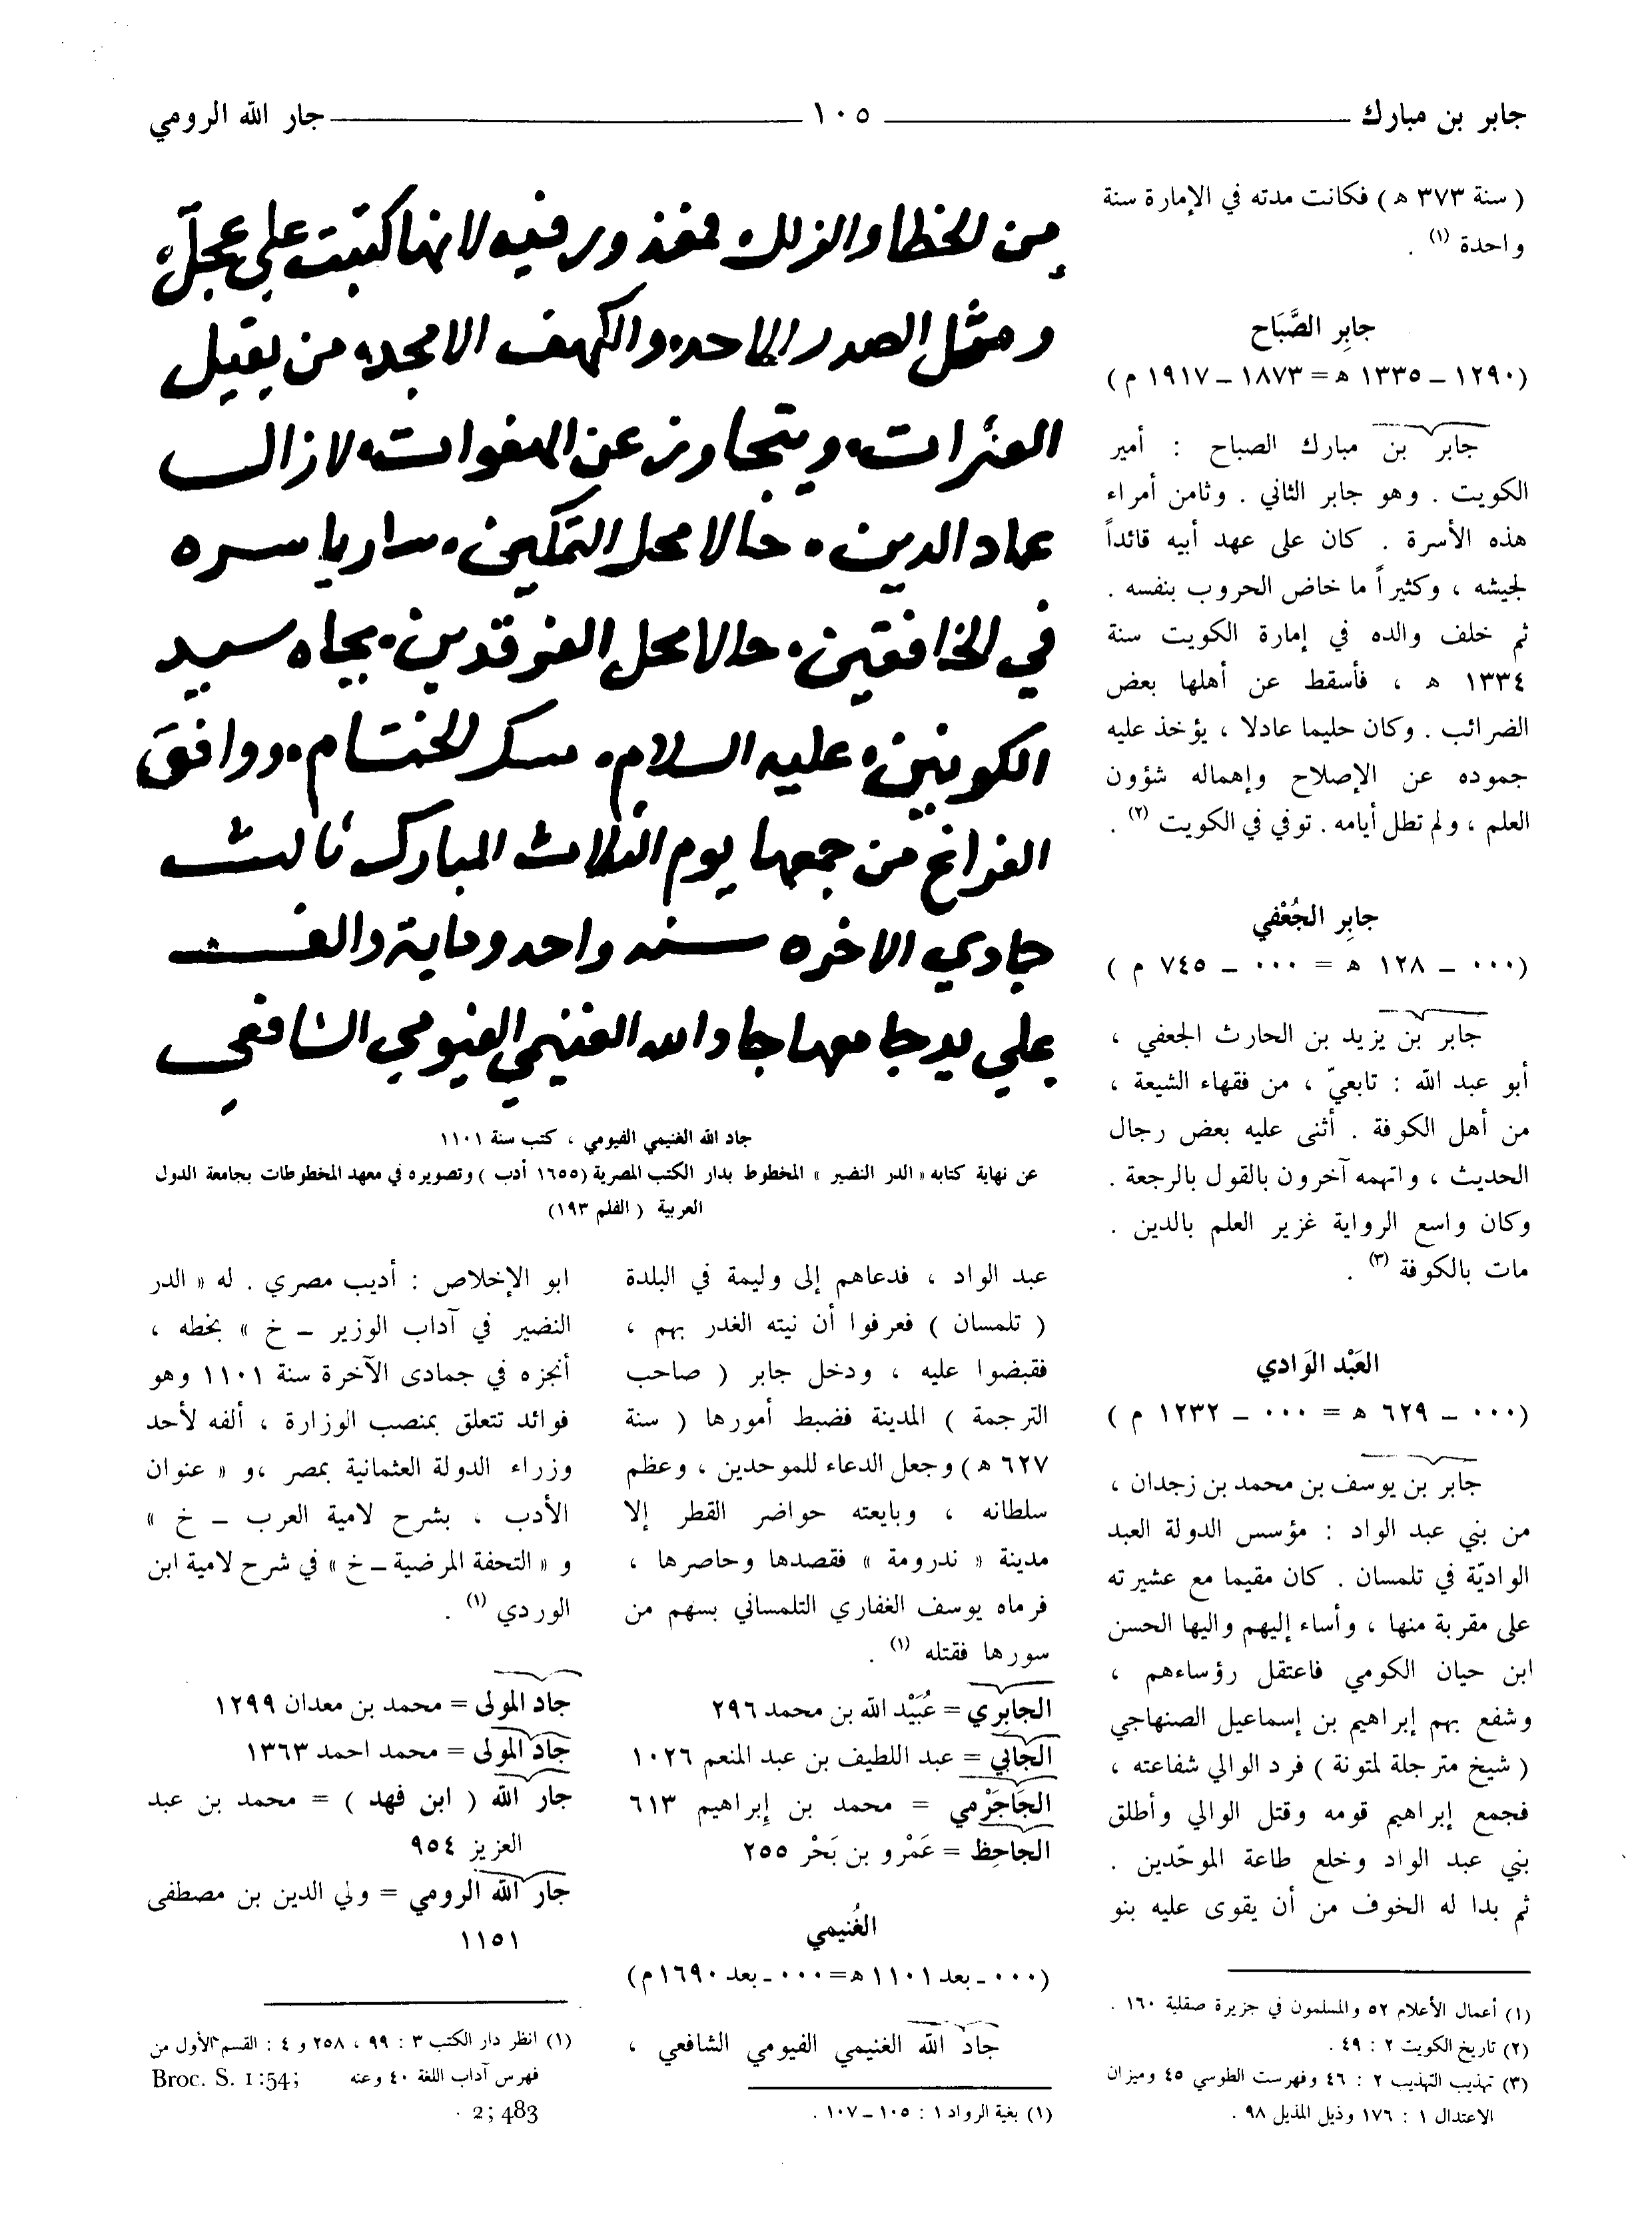 جابر بن مبارك ١٠٥ جار الله الرومي
( سنة ٣٧٣ ه ) فكانت مدته في الإمارة سنة
واحدة (١) .
جابِر الصَّبَاح
(١٢٩٠ ــ ١٣٣٥ ه = ١٨٧٣ ــ ١٩١٧ م )
جابر بن مبارك الصباح : أمير
الكويت . وهو جابر الثاني . وثامن أمراء
هذه الأسرة . كان على عهد أبيه قائداً
لجيشه ، وكثيراً ما خاض الحروب بنفسه .
ثم خلف والده في إمارة الكويت سنة
١٣٣٤ ه ، فأسقط عن أهلها بعض
الضرائب . وكان حليما عادلا ، يؤخذ عليه
جموده عن الإصلاح وإهماله شؤون
العلم ، ولم تطل أيامه . توفي في الكويت (٢) .
جابِر الجُعْفي
(٠٠٠ ــ ١٢٨ ه = ٠٠٠ ــ ٧٤٥ م )
جابر بن يزيد بن الحارث الجعفي ،
أبو عبد الله : تابعيّ ، من فقهاء الشيعة ،
من أهل الكوفة . أثنى عليه بعض رجال
الحديث ، واتهمه آخرون بالقول بالرجعة .
وكان واسع الرواية غزير العلم بالدين .
مات بالكوفة (٣) .
العَبْد الوَادي
(٠٠٠ ــ ٦٢٩ ه = ٠٠٠ ــ ١٢٣٢ م )
جابر بن يوسف بن محمد بن زجدان ،
من بني عبد الواد : مؤسس الدولة العبد
الواديّة في تلمسان . كان مقيما مع عشيرته
على مقربة منها ، وأساء إليهم واليها الحسن
ابن حيان الكومي فاعتقل رؤساءهم ،
وشفع بهم إبراهيم بن إسماعيل الصنهاجي
( شيخ مترجلة لمتونة ) فرد الوالي شفاعته ،
فجمع إبراهيم قومه وقتل الوالي وأطلق
بني عبد الواد وخلع طاعة الموحّدين .
ثم بدا له الخوف من أن يقوى عليه بنو
(١) أعمال الأعلام ٥٢ والمسلمون في جزيرة صقلية ١٦٠ .
(٢) تاريخ الكويت ٢ : ٤٩ .
(٣) تهذيب التهذيب ٢ : ٤٦ وفهرست الطوسي ٤٥ وميزان
الاعتدال ١ : ١٧٦ وذيل المذيل ٩٨ .
من الخطا والزلل فمعذور فيه لانها كتبت على عجل
ومثل الصدر الاحد والكهف الامجد من يقيل
العثرات ويتجاوز عن الهفوات لازال
عماد الدين حالا محل التمكين ساريا سره
في الخافقين حالا محل الفرقدين بجاه سيد
الكونين عليه السلام مسك الختام ووافق
الفراغ من جمعها يوم الثلاث المبارك ثالث
جمادي الاخره سنه واحد وماية والف
علي يد جامعها جاد الله الغنيمي الفيومي الشافعي
جاد الله الغنيمي الفيومي ، كتب سنة ١١٠١
عن نهاية كتابه « الدر النضير » المخطوط بدار الكتب المصرية (١٦٥٥ أدب ) وتصويره في معهد المخطوطات بجامعة الدول
العربية ( الفلم ١٩٣)
عبد الواد ، فدعاهم إلى وليمة في البلدة
( تلمسان ) فعرفوا أن نيته الغدر بهم ،
فقبضوا عليه ، ودخل جابر ( صاحب
الترجمة ) المدينة فضبط أمورها ( سنة
٦٢٧ ه ) وجعل الدعاء للموحدين ، وعظم
سلطانه ، وبايعته حواضر القطر إلا
مدينة « ندرومة » فقصدها وحاصرها ،
فرماه يوسف الغفاري التلمساني بسهم من
سورها فقتله (١) .
الجابِري = عُبَيْد الله بن محمد ٢٩٦
الجابي = عبد اللطيف بن عبد المنعم ١٠٢٦
الجَاجَرْمي = محمد بن إبراهيم ٦١٣
الجاحِظ = عَمْرو بن بَحْر ٢٥٥
الغُنيمي
(٠٠٠ ــ بعد ١١٠١ ه = ٠٠٠ ــ بعد ١٦٩٠ م)
جاد الله الغنيمي الفيومي الشافعي ،
(١) بغية الرواد ١ : ١٠٥ ــ ١٠٧ .
ابو الإخلاص : أديب مصري . له « الدر
النضير في آداب الوزير ــ خ » بخطه ،
أنجزه في جمادى الآخرة سنة ١١٠١ وهو
فوائد تتعلق بمنصب الوزارة ، ألفه لأحد
وزراء الدولة العثمانية بمصر ،و « عنوان
الأدب ، بشرح لامية العرب ــ خ »
و « التحفة المرضية ــ خ » في شرح لامية ابن
الوردي (١) .
جاد المولى = محمد بن معدان ١٢٩٩
جاد المولى = محمد احمد ١٣٦٣
جار الله ( ابن فهد ) = محمد بن عبد
العزيز ٩٥٤
جار الله الرومي = ولي الدين بن مصطفى
١١٥١
(١) انظر دار الكتب ٣ : ٩٩ ، ٢٥٨ و ٤ : القسم الأول من
فهرس آداب اللغة ٤٠ وعنه Broc. S. 1:54;
2; 483 .